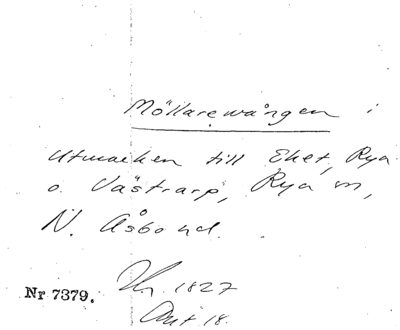 Möllarewången i
Utmarken till Eket, Rya
o. Västrarp, Rya sn,
N. Åsbo hd.
1827
Nr 7379.
18.